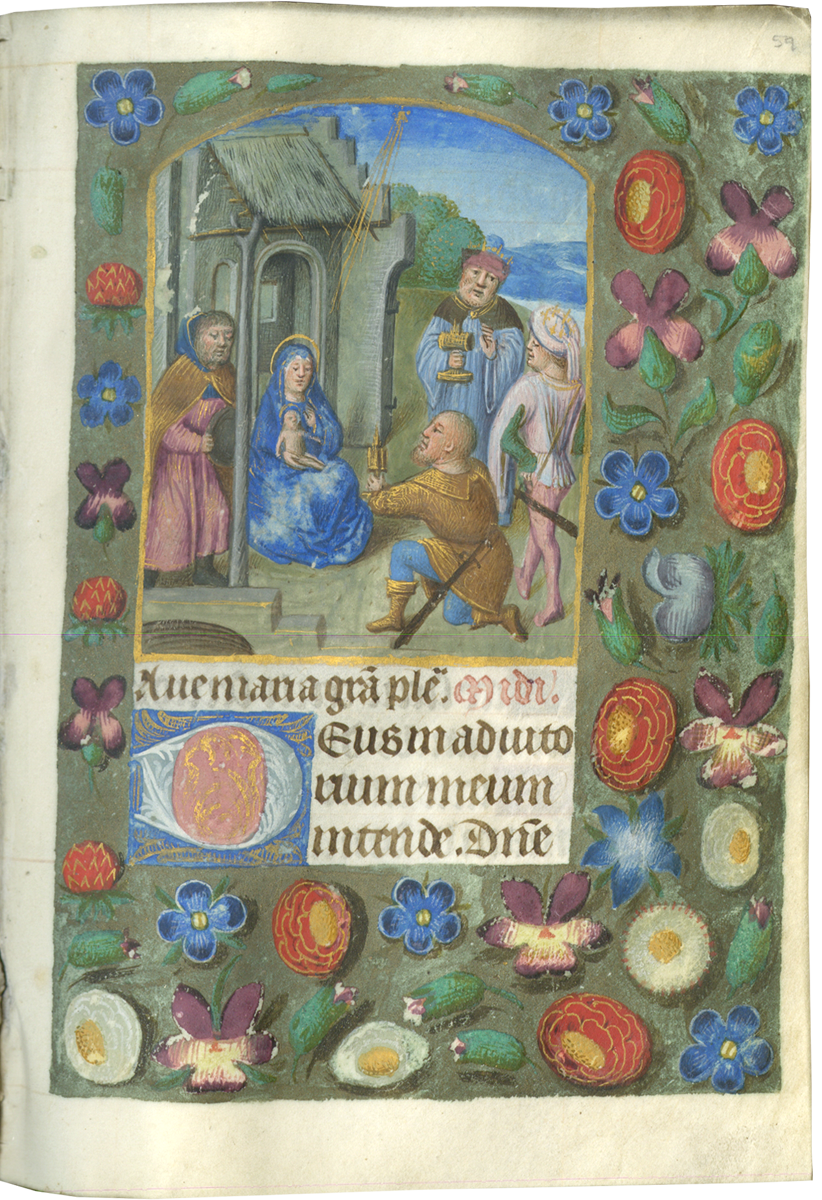 59
Aue maria grã plẽ. Midi.
Deus in adiuto
rium meum
intende. Dñe